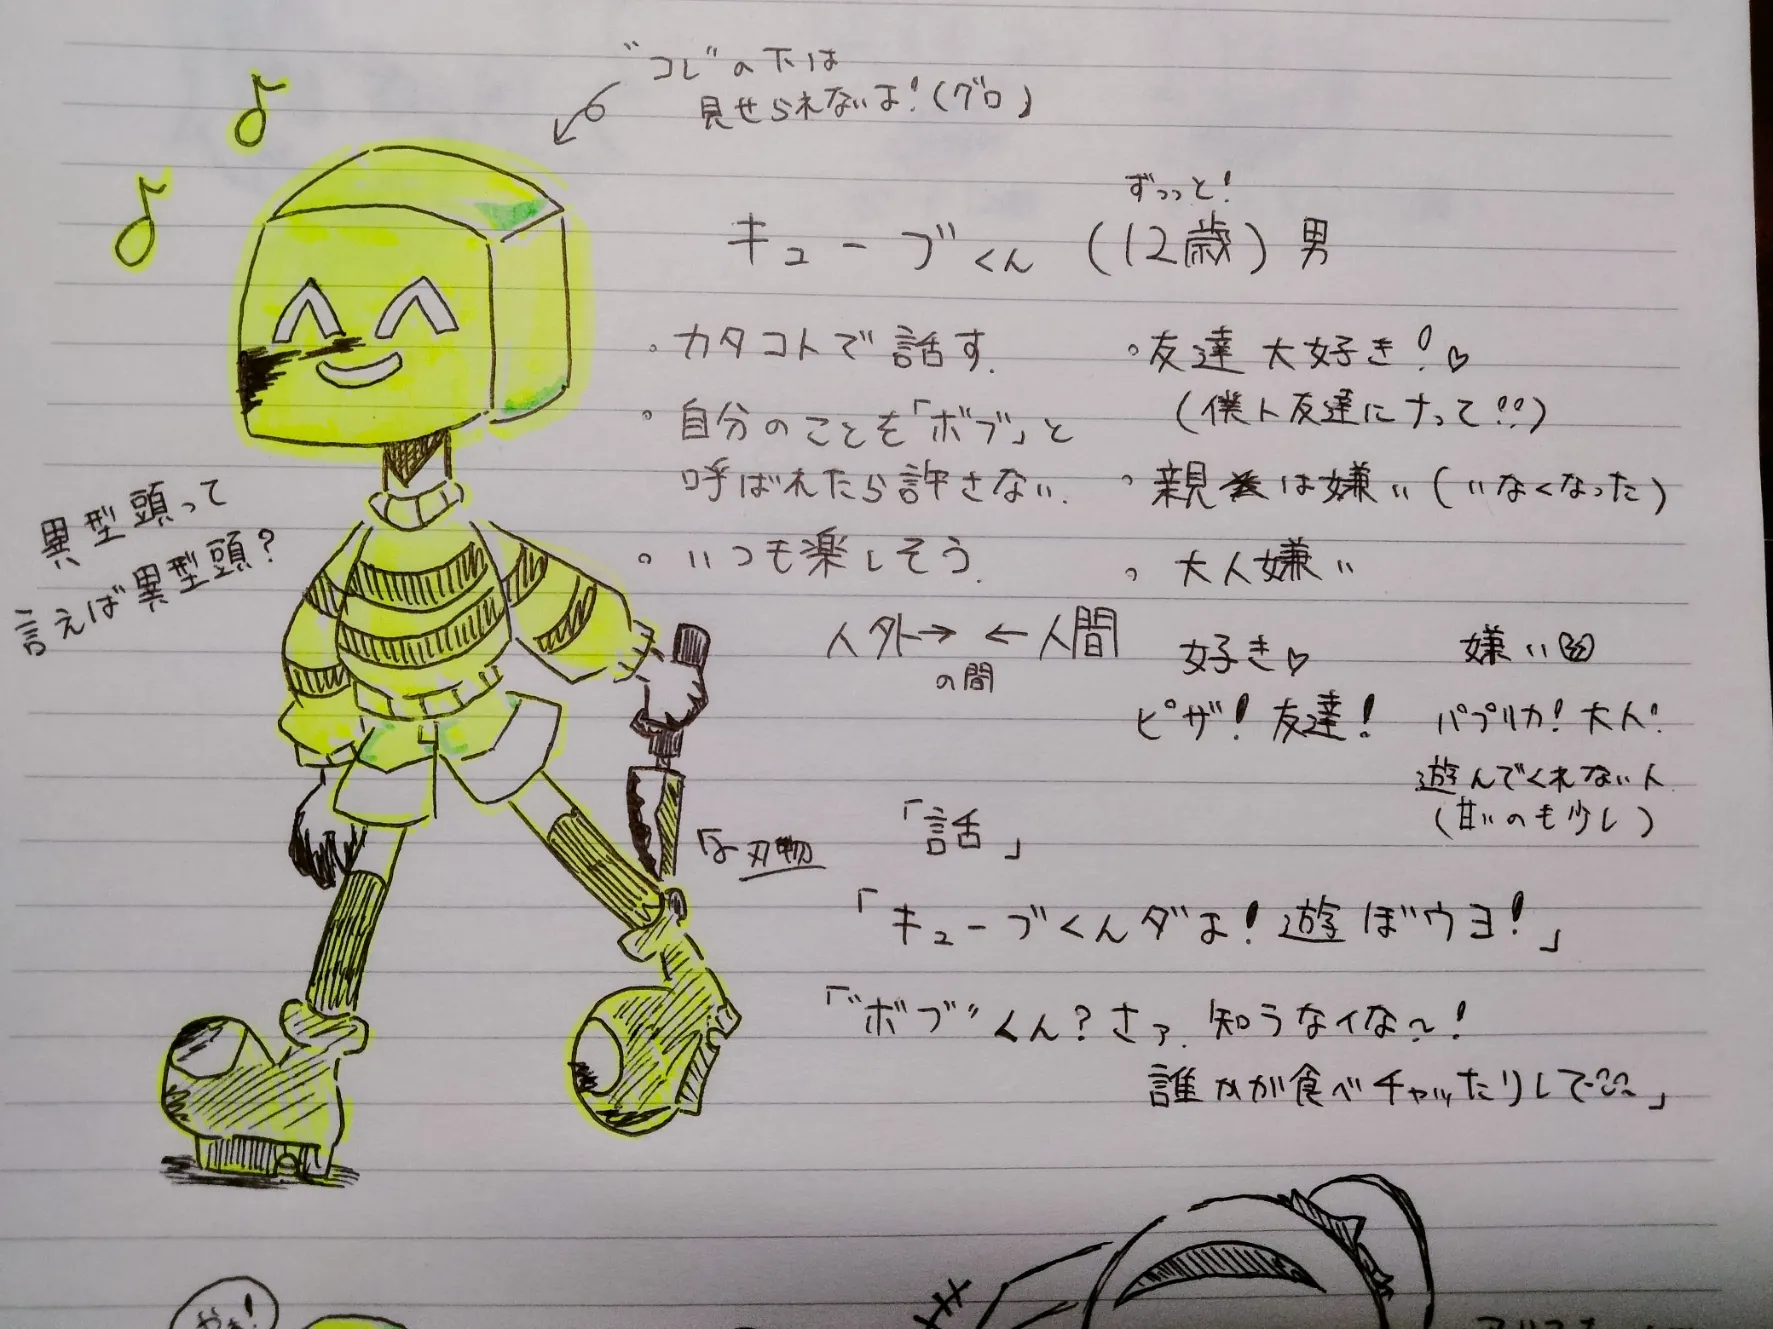 "コレ"の下は
見せられないよ！(グロ)
ずっっと！
キューブくん (12歳) 男
。カタコトで話す.
。自分のことを「ボブ」と
呼ばれたら許さない.
。いつも楽しそう.
。友達 大好き！♡
(僕ト友達にナって!!)
。親は嫌い (いなくなった)
。大人嫌い
異型頭って
言えば異型頭？
人外→ ←人間
の間
好き♡
ピザ！友達！
嫌い
パプリカ！大人！
遊んでくれない人
(甘いのも少し)
刃物
「話」
「キューブくんダよ！遊ぼウヨ！」
「"ボブ"くん？さァ. 知うなイな〜！
誰かが食べチャッたりしてネ〜」
やぁ！